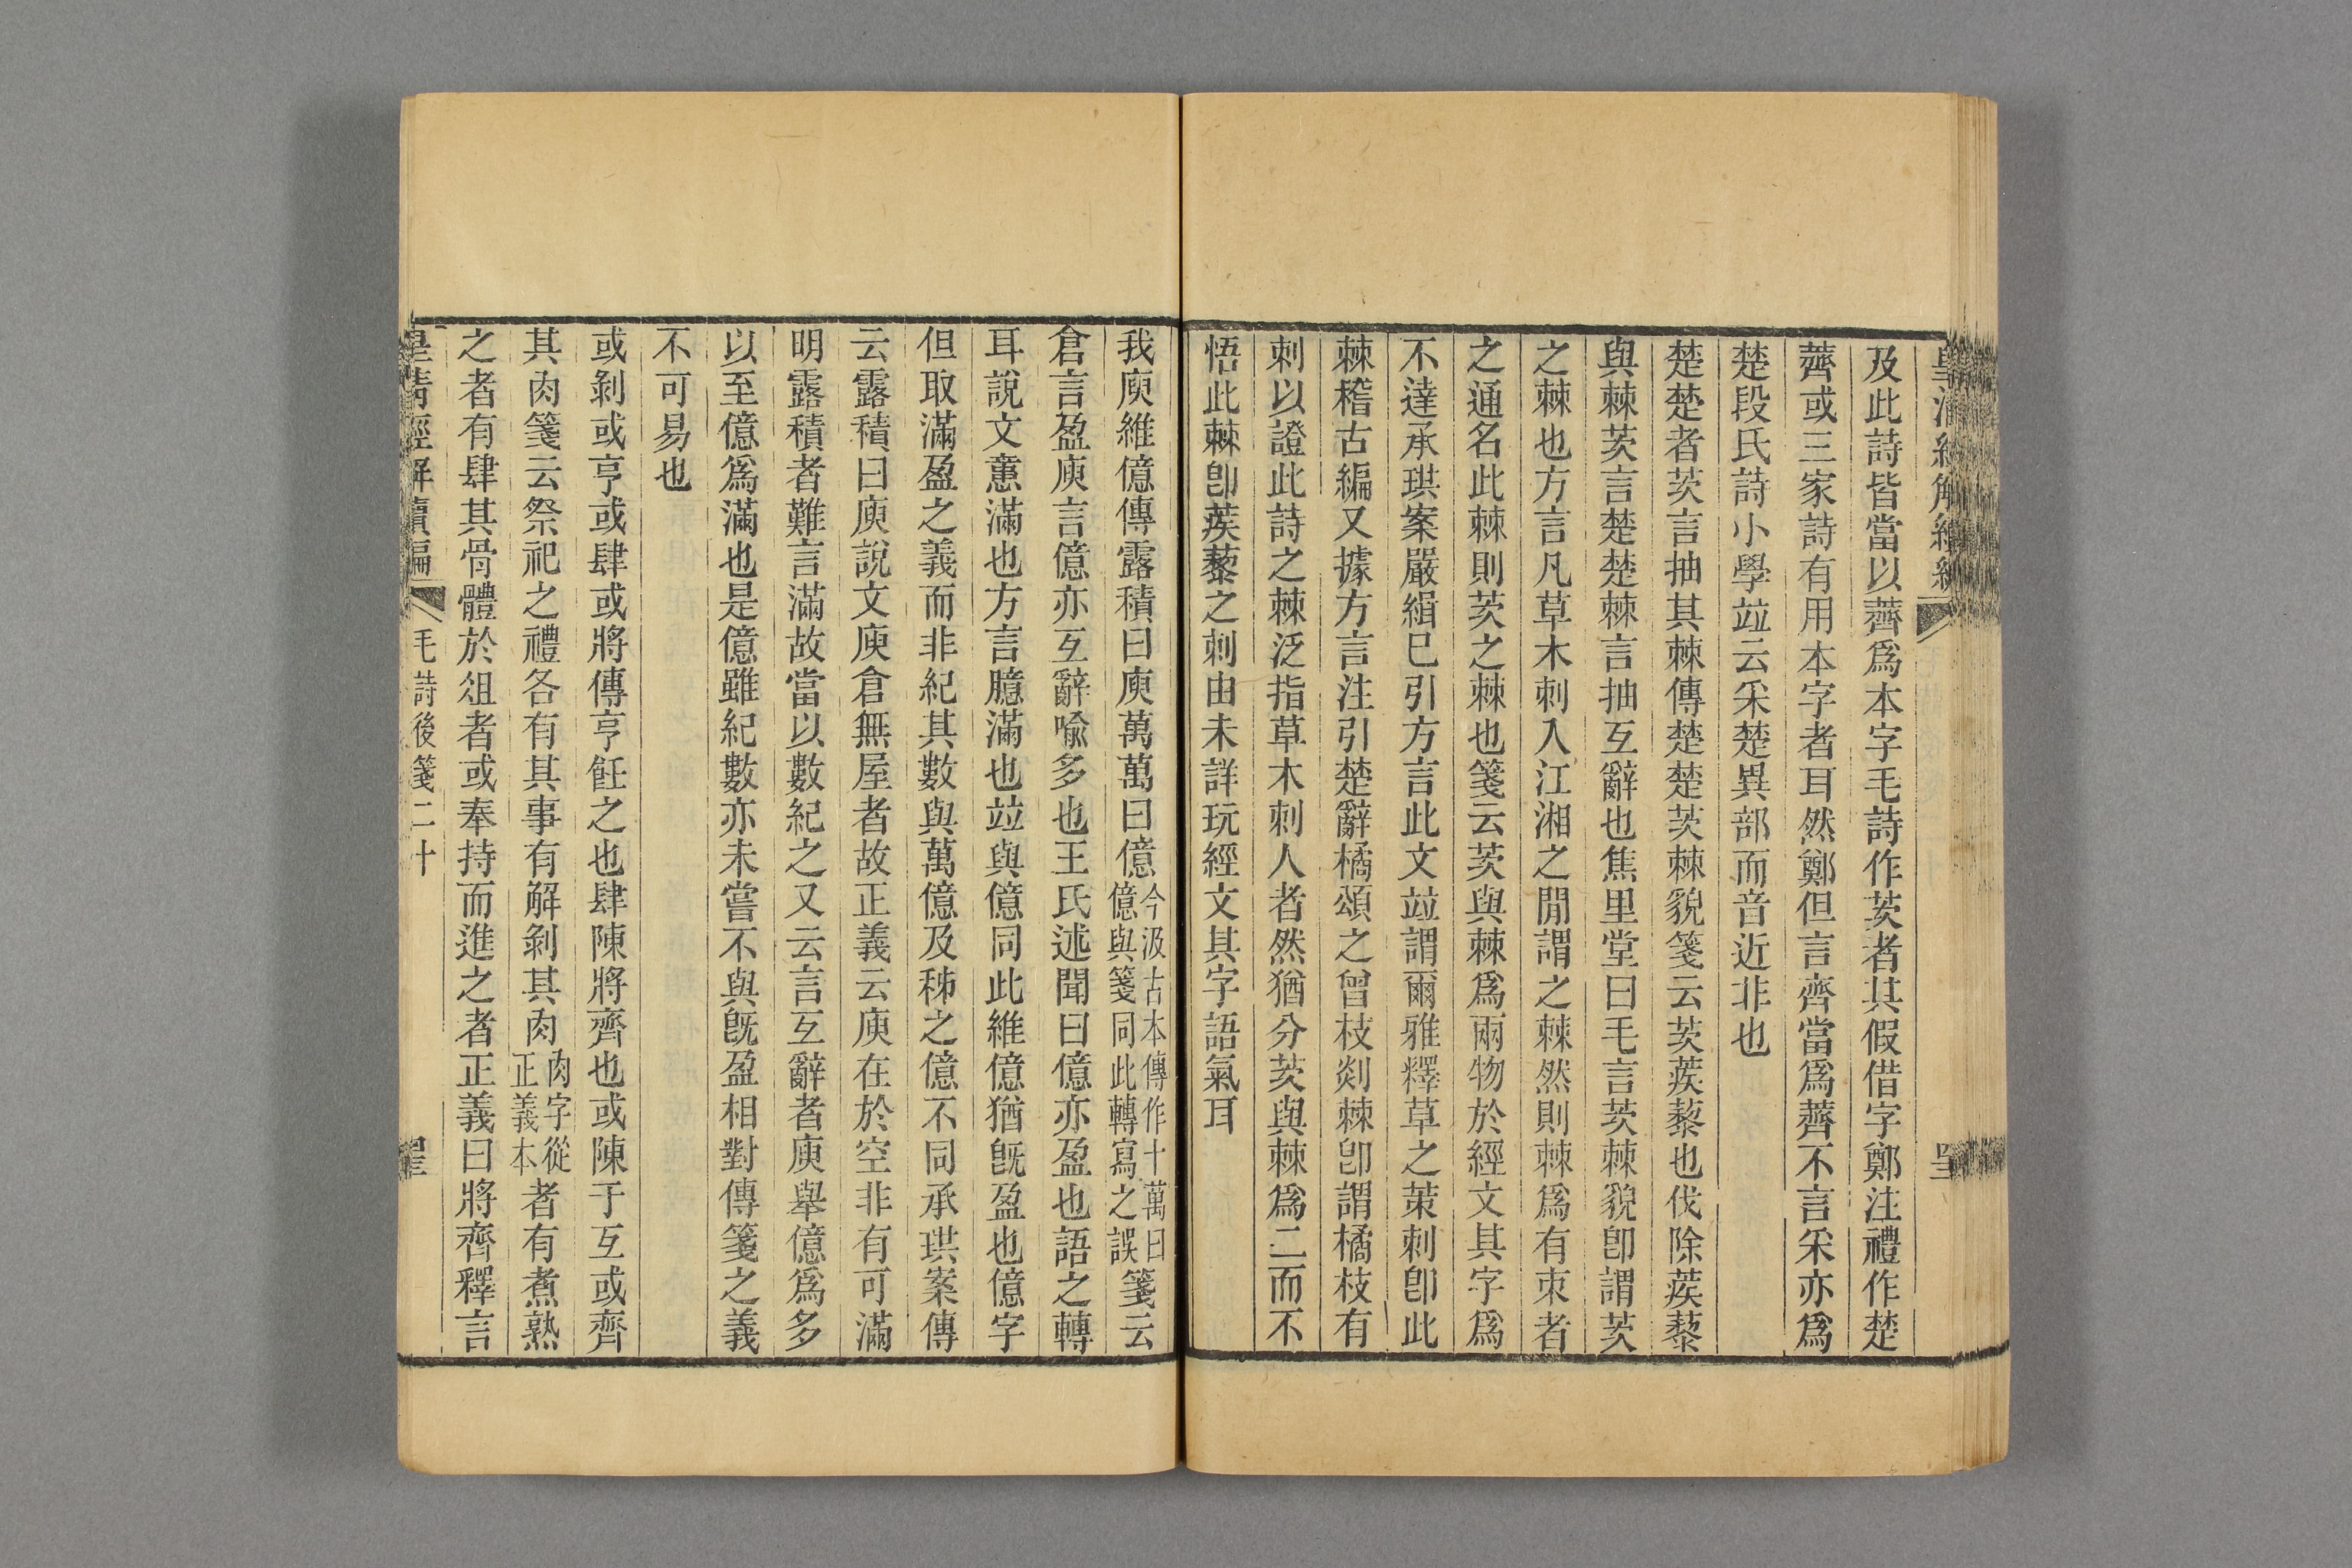 及此詩皆當以薺爲本字毛詩作茨者其假借字鄭注禮作楚
薺或三家詩有用本字者耳然鄭但言齊當爲薺不言采亦爲
楚段氏詩小學竝云采楚異部而音近非也
楚楚者茨言抽其棘傳楚楚茨棘貌箋云茨蒺藜也伐除蒺藜
與棘茨言楚楚棘言抽互辭也焦里堂曰毛言茨棘貌卽謂茨
之棘也方言凡草木刺入江湘之閒謂之棘然則棘爲有朿者
之通名此棘則茨之棘也箋云茨與棘爲兩物於經文其字爲
不達承珙案嚴緝巳引方言此文竝謂爾雅釋草之茦刺卽此
棘稽古編又據方言注引楚辭橘頌之曾枝剡棘卽謂橘枝有
刺以證此詩之棘泛指草木刺人者然猶分茨與棘爲二而不
悟此棘卽蒺藜之刺由未詳玩經文其字語氣耳
我庾維億傳露積曰庾萬萬曰億今汲古本傳作十萬曰億與箋同此轉寫之誤箋云
倉言盈庾言億亦互辭喻多也王氏述聞曰億亦盈也語之轉
耳說文意滿也方言臆滿也竝與億同此維億猶旣盈也億字
但取滿盈之義而非紀其數與萬億及秭之億不同承珙案傳
云露積曰庾說文庾倉無屋者故正義云庾在於空非有可滿
明露積者難言滿故當以數紀之又云言互辭者庾舉億爲多
以至億爲滿也是億雖紀數亦未嘗不與旣盈相對傳箋之義
不可易也
或剝或亨或肆或將傳亨飪之也肆陳將齊也或陳于互或齊
其肉箋云祭祀之禮各有其事有解剝其肉肉字從正義本者有煮熟
之者有肆其骨體於俎者或奉持而進之者正義曰將齊釋言
皇清經解續編 毛詩後箋二十